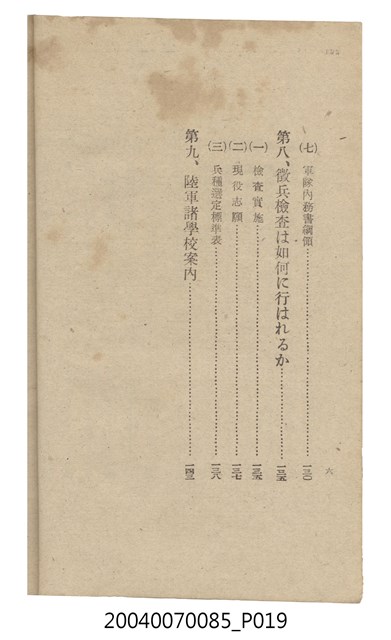 (七) 軍隊內務書綱領……一三〇
第八、徵兵檢査は如何に行はれるか……一三五
(一) 檢査實施……一三五
(二) 現役志願……一三七
(三) 兵種選定標準表……一三八
第九、陸軍諸學校案內……一四三
六
20040070085_P019